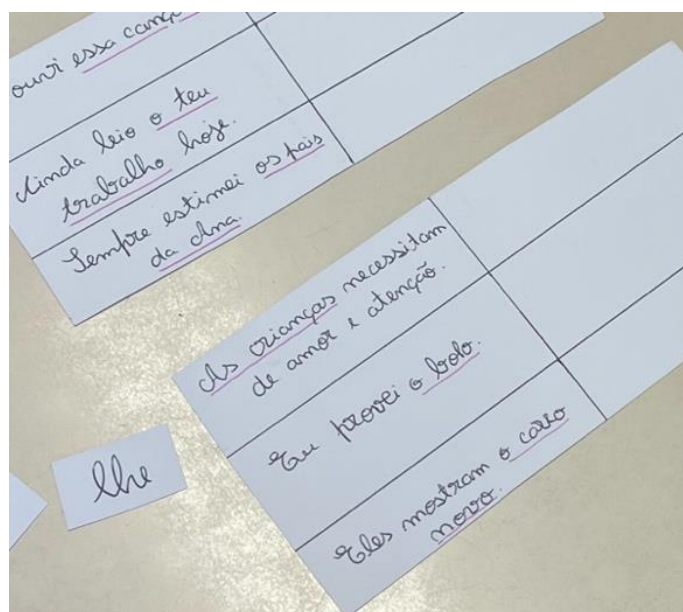 ouvi essa canç
Ainda leio o teu
trabalho hoje.
Sempre estimei os pais
da Ana.
As crianças necessitam
de amor e atenção.
Eu provei o bolo.
Eles mostram o carro
novo.
lhe